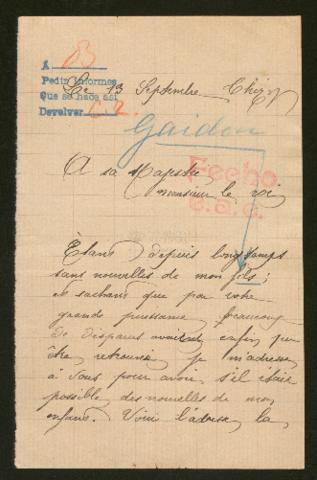 A B
Pedir informes
Que se hace así
Devolver
Le 13 Septembre
Gaidon
A sa Majesté
monsieur le roi
Fecho
Étans depuis longtemps
sans nouvelles de mon fils,
et sachans que par votre
grande puissance beaucoup
de disparus avaient enfin pu
être retrouvés je m'adresse
à vous pour avoir s'il était
possible des nouvelles de mon
enfant. Voici l'adresse la